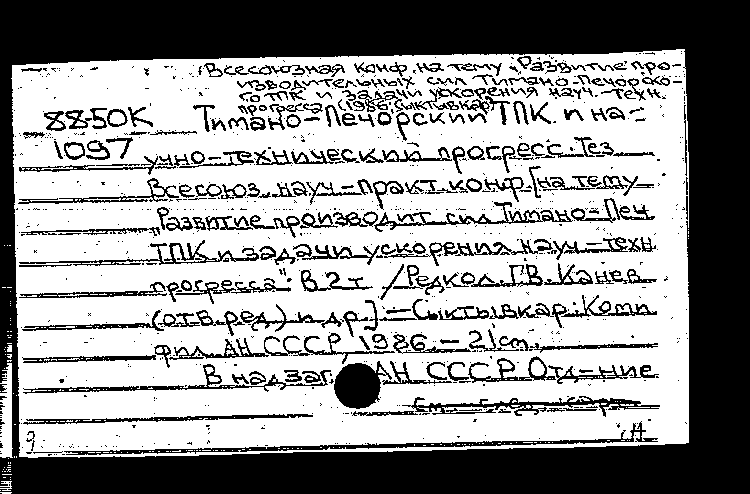 Всесоюзная конф. на тему „Развитие про-
изводительных сил Тимано-Печорско-
го ТПК и задачи ускорения науч.-техн.
прогресса (1986, Сыктывкар)
88-50К Тимано-Печорский ТПК и на-
1097 учно-технический прогресс. Тез.
Всесоюз. науч.-практ. конф. [на тему
„Развитие производит. сил Тимано-Печ.
ТПК и задачи ускорения науч.-техн.
прогресса": В 2 т. /Редкол. Г.В. Канев
(отв. ред.) и др.] — Сыктывкар: Коми
фил. АН СССР, 1986. — 21 см.
В надзаг.: АН СССР. Отд-ние
см. след. карт.
9 н